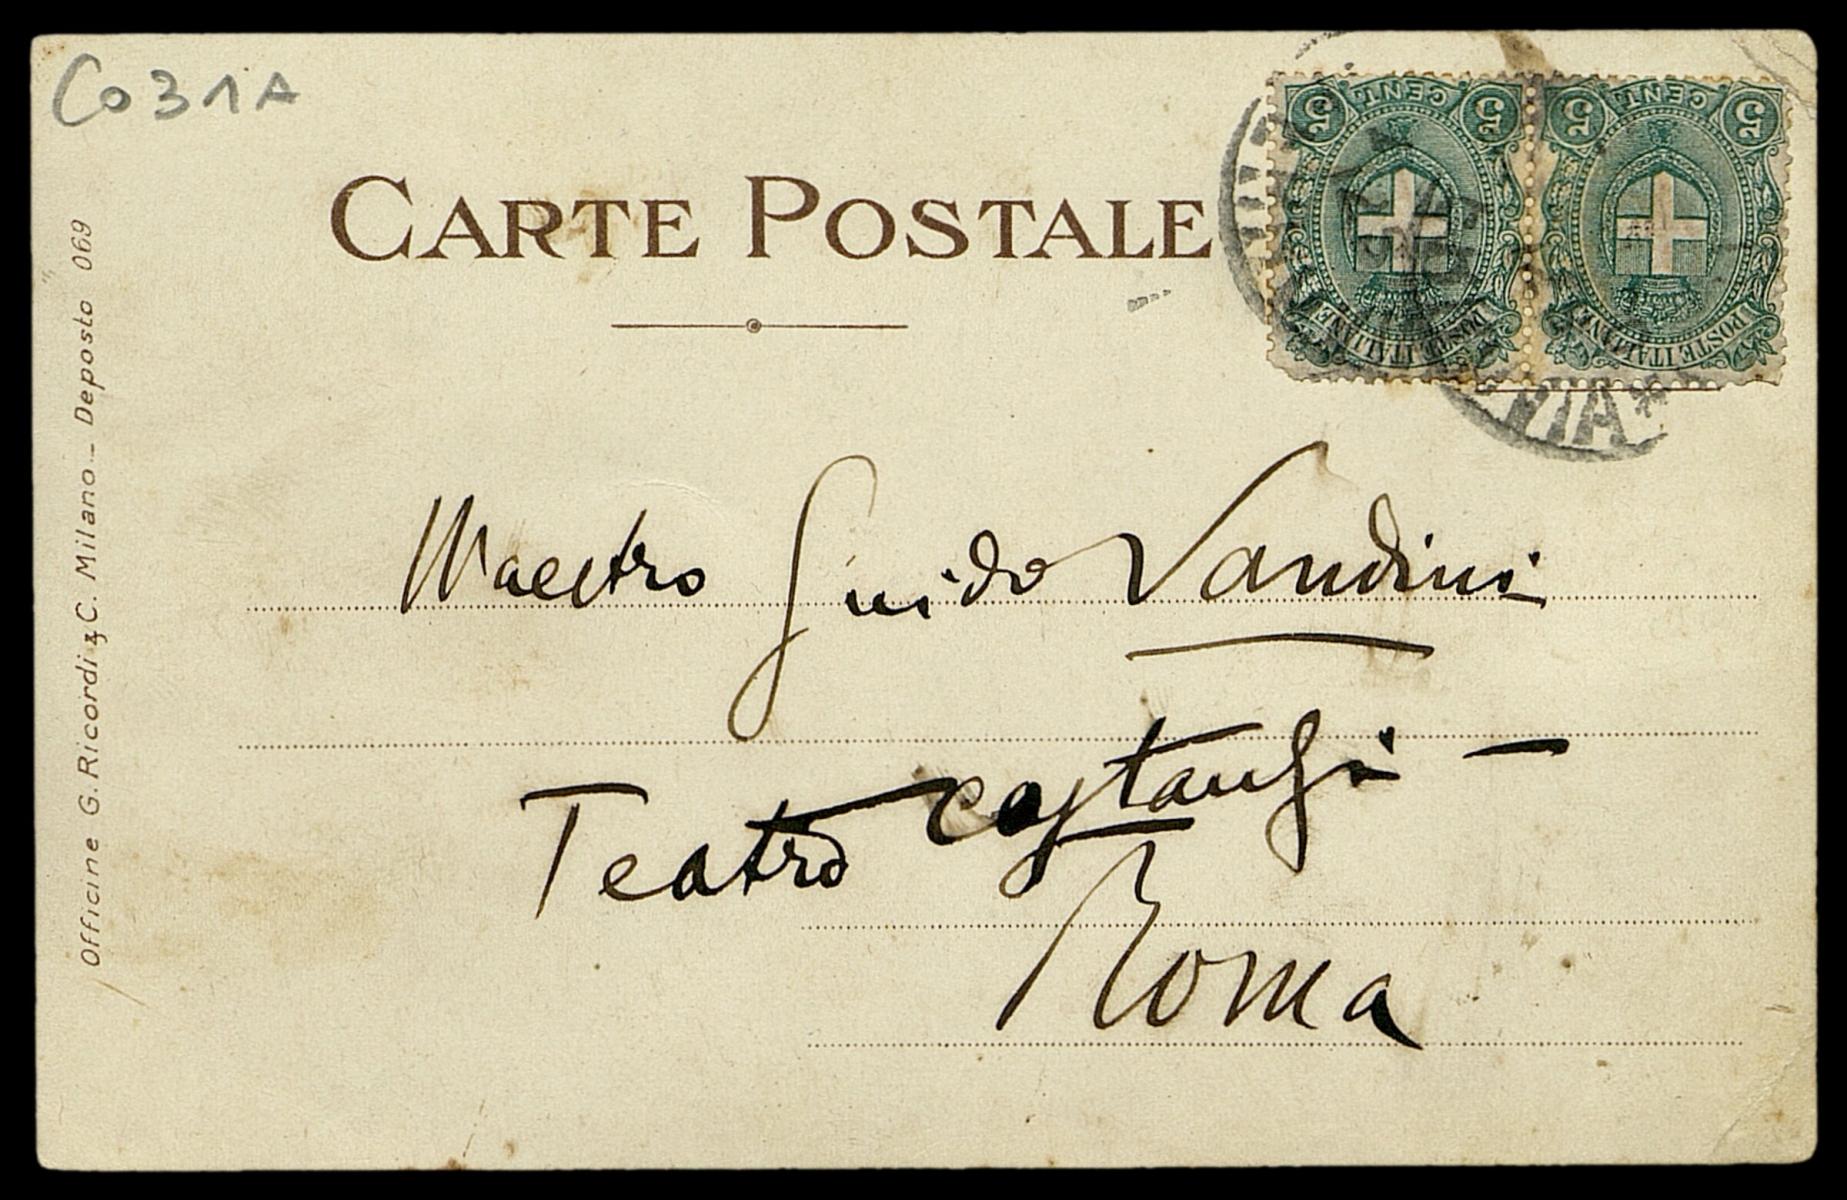 Co31A
CARTE POSTALE
5 CENT. 5
POSTE ITALIANE
5 CENT. 5
POSTE ITALIANE
Maestro Guido Vandini
Teatro Costanzi —
Roma
Officine G. Ricordi & C. Milano - Deposto 069